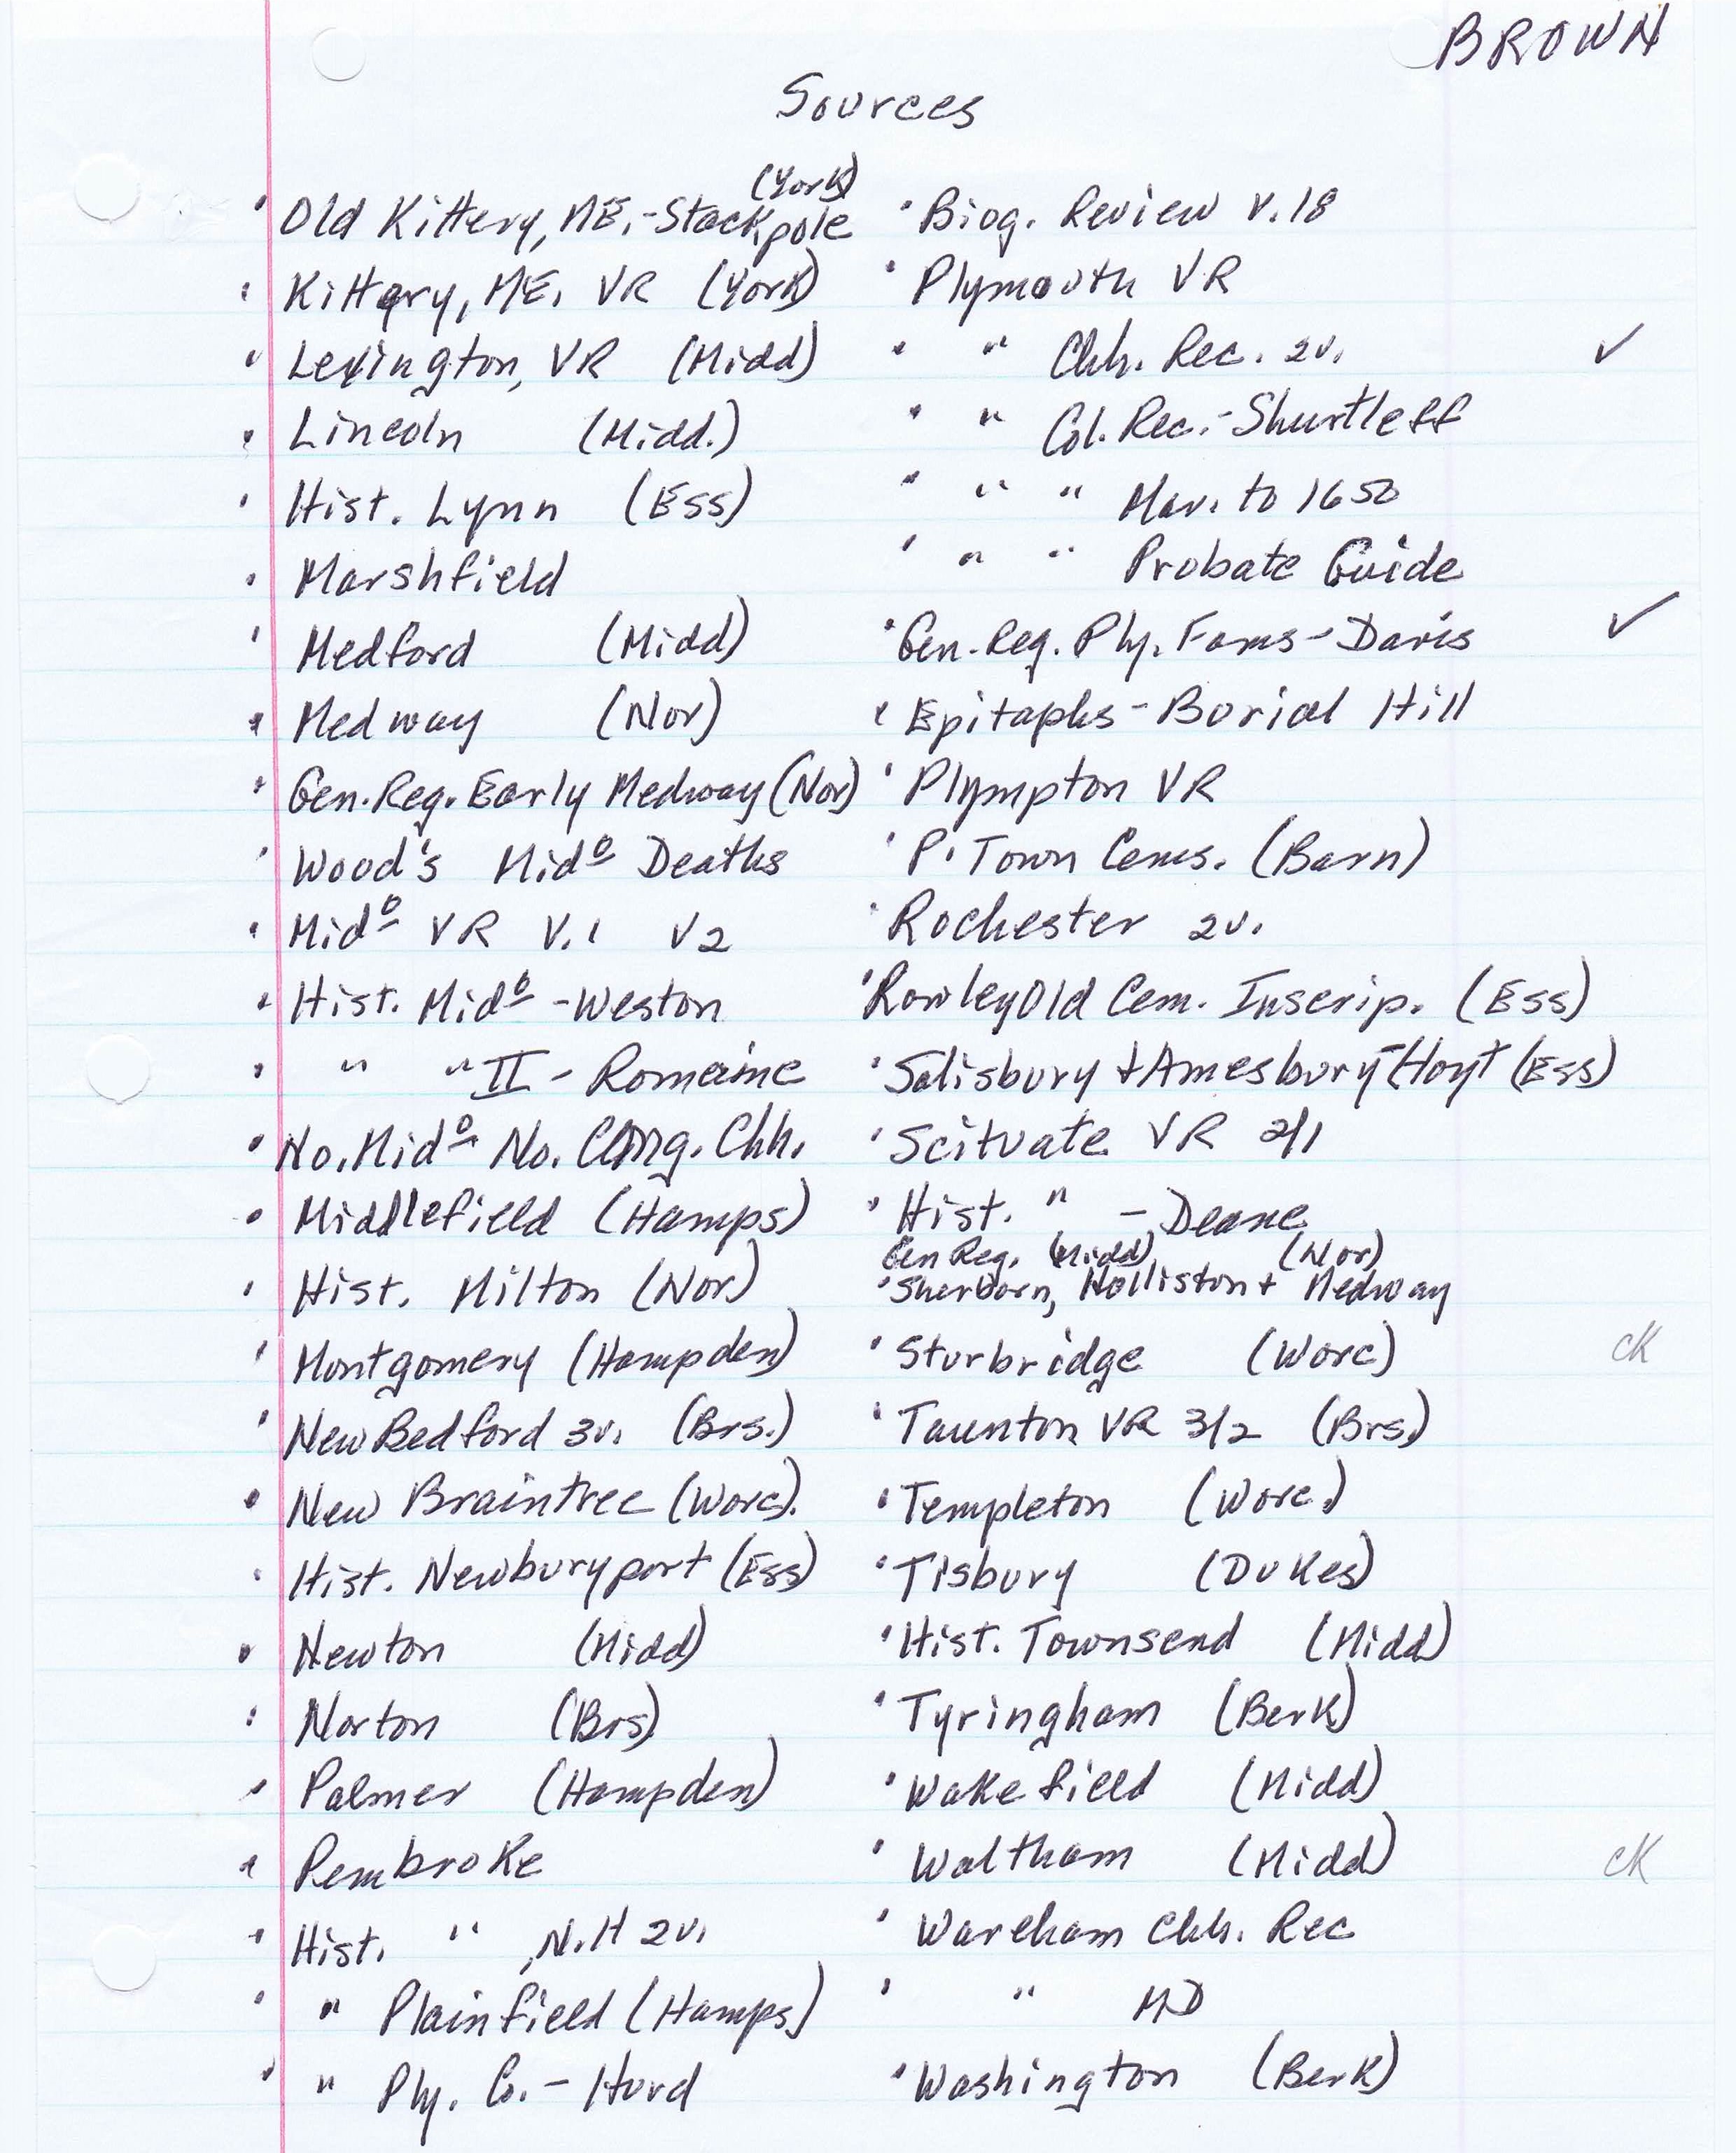 BROWN
Sources
(York)
Old Kittery, ME.-Stackpole
Kittery, ME. VR (York)
Lexington, VR (Midd)
Lincoln (Midd.)
Hist. Lynn (Ess)
Marshfield
Medford (Midd)
Medway (Nor)
Gen. Reg. Early Medway (Nor)
Wood's Midº Deaths
Midº VR V.1 V2
Hist. Midº - Weston
" " II - Romaine
No. Midº No. Cong. Chh.
Middlefield (Hamps)
Hist. Milton (Nor)
Montgomery (Hampden)
New Bedford 3v. (Brs.)
New Braintree (Worc).
Hist. Newburyport (Ess)
Newton (Midd)
Norton (Brs)
Palmer (Hampden)
Pembroke
Hist. " , N.H 2v.
" Plainfield (Hamps)
" Ply. Co. - Hurd
Biog. Review V.18
Plymouth VR
" Chh. Rec. 2v. ✓
" Col. Rec. - Shurtleff
" " Mar. to 1650
" " Probate Guide
Gen. Reg. Ply. Fams - Davis ✓
Epitaphs - Burial Hill
Plympton VR
P. Town Cems. (Barn)
Rochester 2v.
Rowley Old Cem. Inscrip. (Ess)
Salisbury + Amesbury - Hoyt (Ess)
Scituate VR 2/1
Hist. " - Deane
Gen Reg. (Midd) (Nor)
Sherborn, Holliston + Medway
Sturbridge (Worc) ck
Taunton VR 3/2 (Brs.)
Templeton (Worc.)
Tisbury (Dukes)
Hist. Townsend (Midd)
Tyringham (Berk)
Wakefield (Midd)
Waltham (Midd) ck
Wareham Chh. Rec
" MD
Washington (Berk)